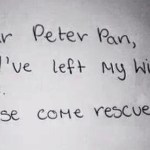 Peter Pan,
I've left my
come rescue